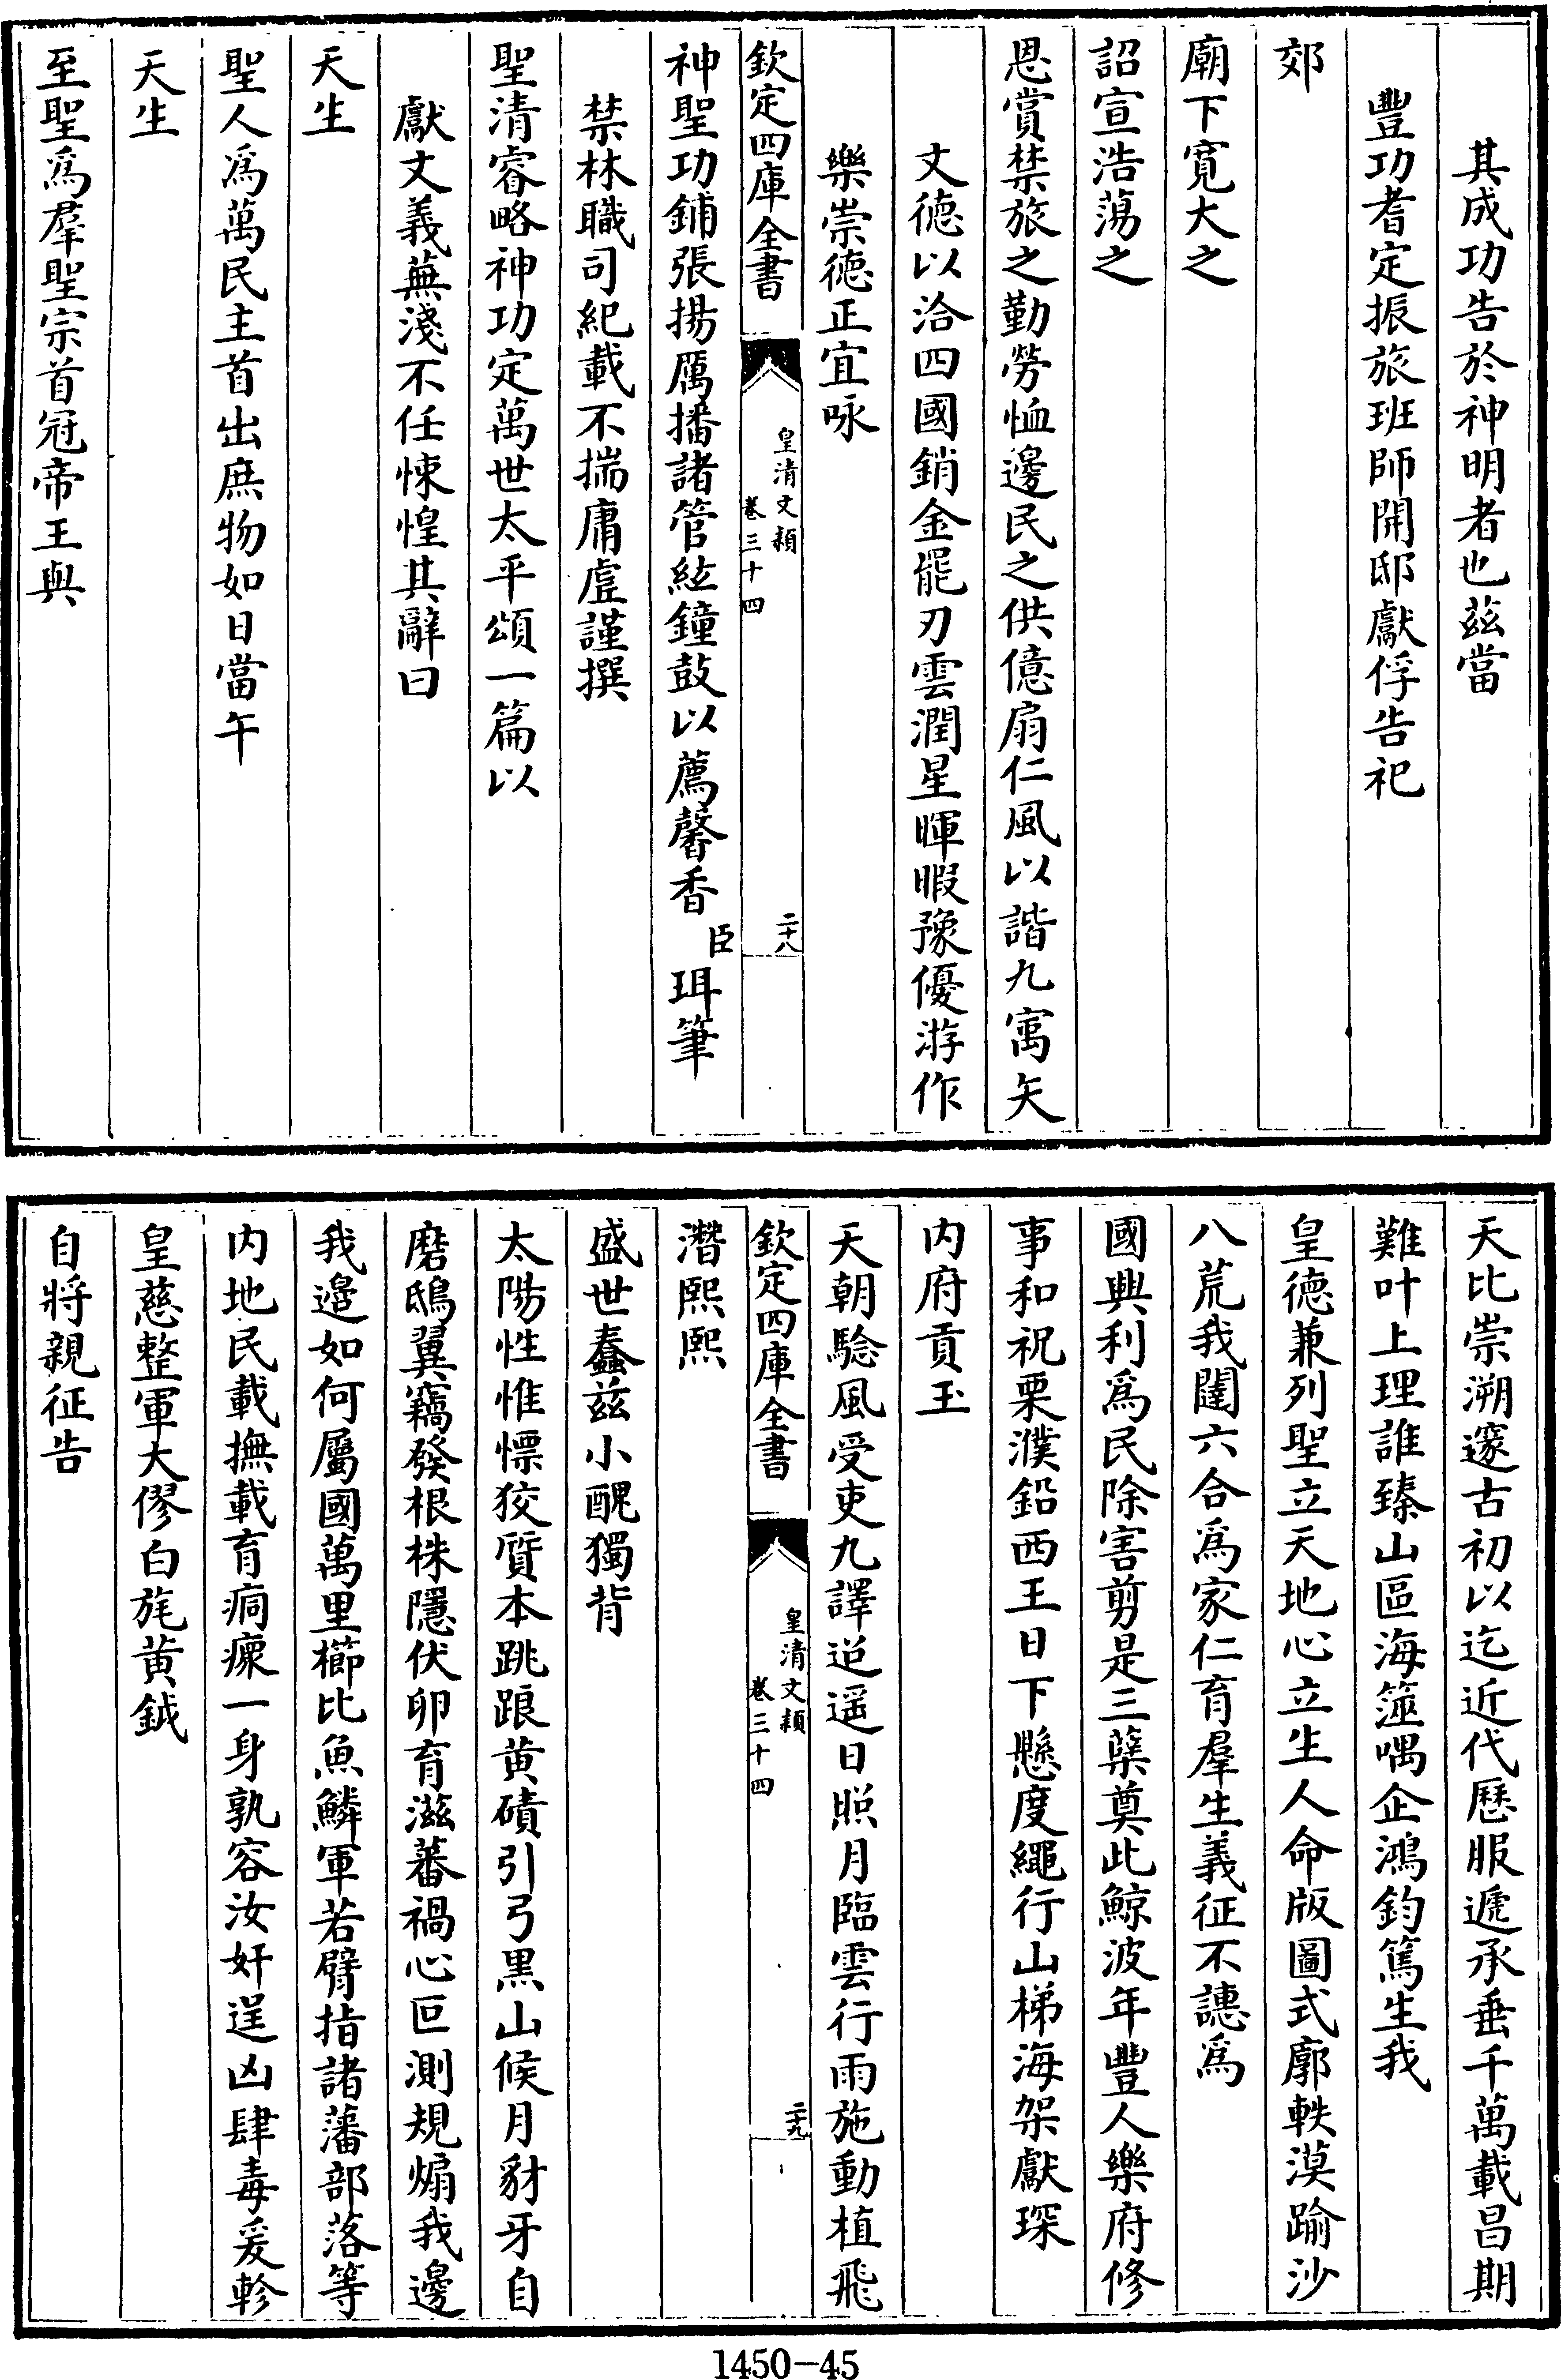 其成功告於神明者也茲當
豐功耆定振旅班師開邸獻俘告祀
郊
廟下寛大之
詔宣浩蕩之
恩賞禁旅之勤勞恤邊民之供億扇仁風以諧九㝢矢
文徳以洽四國銷金罷刃雲潤星暉暇豫優游作
樂崇徳正宜咏
欽定四庫全書
皇清文穎
卷三十四
二十八
神聖功鋪張揚厲播諸管絃鐘鼓以薦馨香臣珥筆
禁林職司紀載不揣庸虚謹撰
聖清睿略神功定萬世太平頌一篇以
獻文義蕪淺不任悚惶其辭曰
天生
聖人爲萬民主首出庶物如日當午
天生
至聖爲羣聖宗首冠帝王與
天比崇溯邃古初以迄近代歴服遞承垂千萬載昌期
難叶上理誰臻山區海澨喁企鴻鈞篤生我
皇徳兼列聖立天地心立生人命版圖式廓軼漠踰沙
八荒我闥六合爲家仁育羣生義征不譓爲
國興利爲民除害剪是三蘖奠此鯨波年豐人樂府修
事和祝栗濮鉛西王日下懸度繩行山梯海架獻琛
内府貢玉
天朝驗風受吏九譯迢遥日照月臨雲行雨施動植飛
欽定四庫全書
皇清文穎
卷三十四
二十九
潛熙熙
盛世蠢兹小醜獨背
太陽性惟慓狡質本跳踉黄磧引弓黒山候月豺牙自
磨鴟翼竊發根株隱伏卵育滋蕃禍心叵測規煽我邊
我邉如何屬國萬里櫛比魚鱗軍若臂指諸藩部落等
内地民載撫載育痌瘝一身孰容汝奸逞凶肆毒爰軫
皇慈整軍大僇白旄黄鉞
自將親征告
1450-45